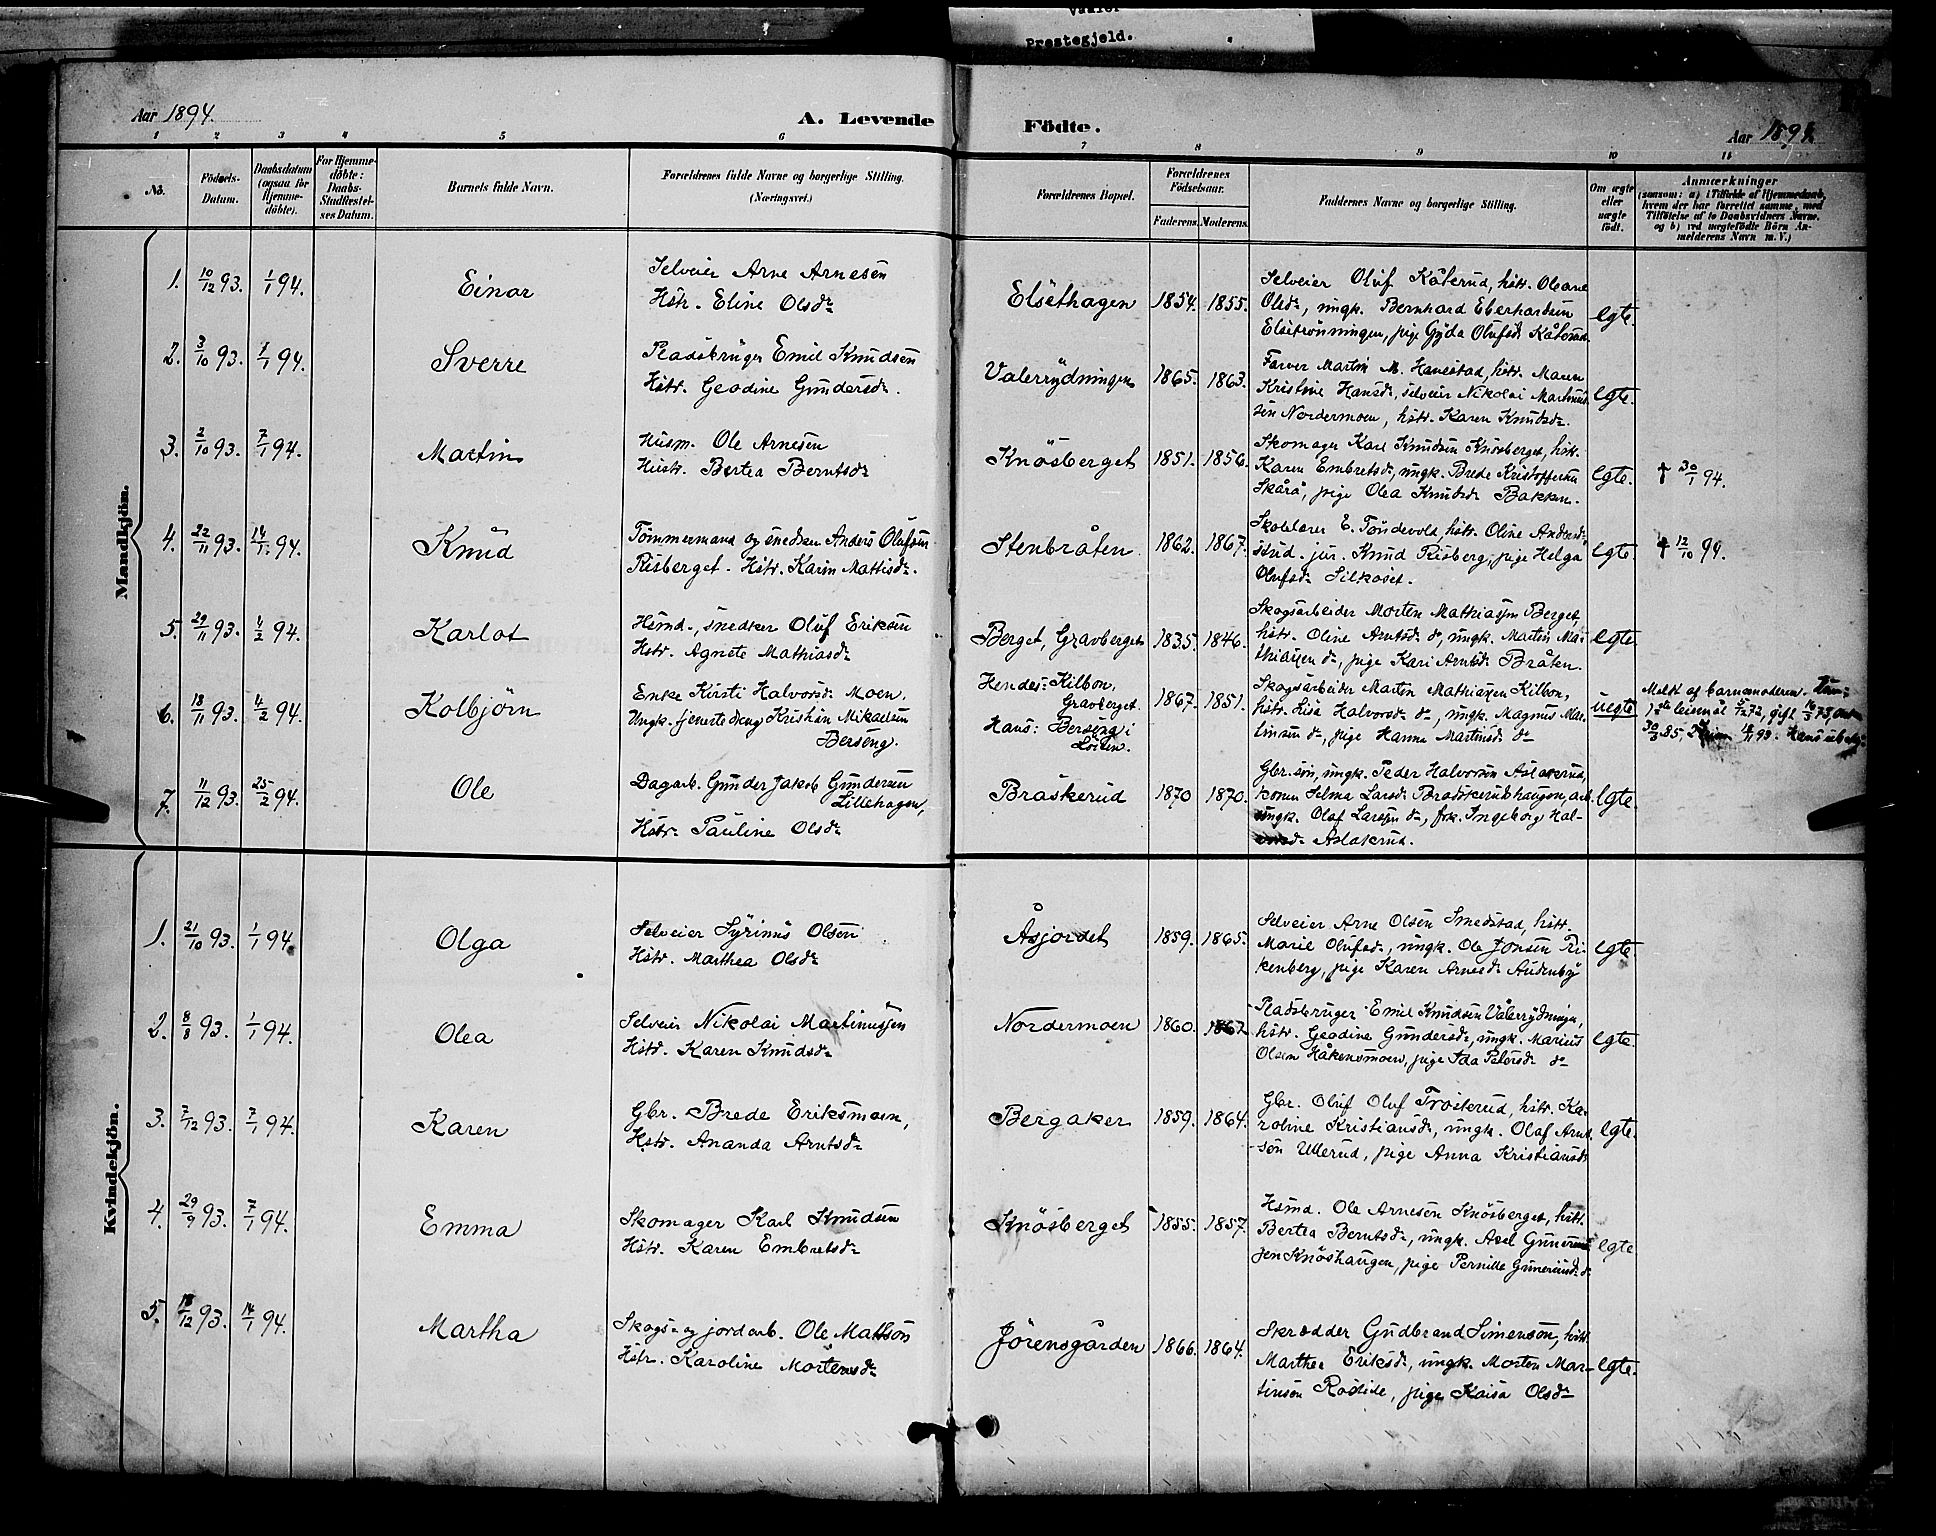 Vaaler
Prestegjeld.
Aar 1894.
A. Levende
Födte.
Aar 1894.
1 2 3 4 5 6 7 8 9 10 11
No.
Födsels-
Datum.
Daabsdatum
(ogsaa for
Hjemme-
döbte).
For Hjemme-
döbte:
Daabs-
Stadfæstel-
ses Datum.
Barnets fulde Navn.
Forældrenes fulde Navne og borgerlige Stilling.
(Næringsvei.)
Forældrenes Bopæl.
Forældrenes
Födselsaar.
Faderens. Moderens.
Faddernes Navne og borgerlige Stilling.
Om ægte
eller
uægte
födt.
Anmærkninger
(saasom: a) i Tilfælde af Hjemmedaab,
hvem der har forrettet samme, med
Tilföielse af to Daabsvidners Navne.
og b) ved uægtefödte Börn An-
melderens Navn m. V.)
Mandkjön.
1. 10/12 93. 1/1 94. Einar
Selveier Arne Arnesen
Hstr. Eline Olsdr
Elsethagen 1854. 1855.
Selveier Oluf Kåterud, hstr. Oleane
Olsdr, ungk. Bernhard Eberhardsen
Elsetrönningen, pige Gyda Olufsdr Kåterud
egte.
2. 3/10 93. 7/1 94. Sverre
Pladsbruger Emil Knudsen
Hstr. Geodine Gundersdr.
Valerrydningen 1865. 1863.
Farver Martin M. Hanestad, hstr. Maren
Kristine Hansdr, selveier Nikolai Martinus-
sen Nordermoen, hstr. Karen Knudsdr.
egte.
3. 2/10 93. 7/1 94. Martin
Husm. Ole Arnesen
Hustr. Bertea Berntsdr
Knösberget 1851. 1856.
Skomager Karl Knudsen Knösberget, hstr.
Karen Embretsdr, ungk. Brede Kristoffersen
Skårå, pige Olea Knudsdr Bakken.
egte. † 30/1 94.
4. 22/11 93. 14/1 94. Knud
Tömmermand og snedker Anders Olufsen
Risberget. Hstr. Karin Mattisdr.
Stenbråten 1862. 1867.
Skolelærer E. Tondevold, hstr. Oline Andersdr
stud. jur. Knud Risberg, pige Helga
Olufsdr Silkoset.
egte † 12/10 94.
5. 29/11 93. 4/2 94. Karlot
Hsmd., snedker Oluf Eriksen
Hstr. Agnete Mathiasdr
Berget, Gravberget 1835. 1846.
Skogsarbeider Morten Mathiassen Berget,
hstr. Oline Arntsdr do, ungk. Martin Ma-
thiassen do, pige Kari Arntsdr Bråten.
egte.
6. 18/11 93. 4/2 94. Kolbjörn
Enke Kirsti Halvorsdr Moen.
Ungk. tjenestedreng Kristian Mikaelsen
Berseng.
Hendes: Kilbon,
Gravberget
Hans: Berseng i
Löiten.
1867. 1851.
Skogsarbeider Martin Mathiassen Kilbon,
hstr. Lisa Halvorsdr do, ungk. Magnus Mar-
tinsen do, pige Hanna Martinsdr do
uegte
Meldt af barnemoderen.
7. 11/12 93. 25/2 94. Ole
Dagarb. Gunder Jakob Gundersen
Lillehagen,
Hstr. Pauline Olsdr
Braskerud 1870 1870.
Gbr. sön, ungk. Peder Halvorsen Aslakrud,
konen Selma Larsdr Braskerudhaugen, arb.
ungk. Olaf Larsen do, frk. Ingeborg Hal-
vorsdr Aslakrud.
egte.
Kvindekjön.
1. 21/10 93. 1/1 94. Olga
Selveier Syrinus Olsen
Hstr. Marthea Olsdr
Åsjordet 1859. 1865.
Selveier Arne Olsen Smedstad, hstr.
Marie Olufsdr, ungk. Ole Jonsen Ri-
kenberg, pige Karen Arnesdr Audenby
egte.
2. 8/8 93. 1/1 94. Olea
Selveier Nikolai Martinussen
Hstr. Karen Knudsdr
Nordermoen 1860. 1862
Pladsbruger Emil Knudsen Vålerrydningen,
hstr. Geodine Gundersdr, ungk. Marius
Olsen Håkensmoen, pige Ida Petersdr do
egte.
3. 7/12 93. 7/1 94. Karen
Gbr. Brede Eriksmoen,
Hstr. Ananda Arntsdr
Bergaker 1859. 1864.
Gbr. Oluf Oluf Froskerud, hstr. Ka-
roline Kristiansdr, ungk. Olaf Arnt-
sön Ullerud, pige Anna Kristiansdr
egte.
4. 29/9 93. 7/1 94. Emma
Skomager Karl Knudsen
Hstr. Karen Embretsdr
Knösberget 1855. 1857.
Hsmd. Ole Arnesen Knösberget, hstr.
Bertea Berntsdr, ungk. Axel Gunerius-
sen Knöshaugen, pige Pernille Guneriusdr do
egte
5. 18/12 93. 14/1 94. Martha
Skogs- og jordarb. Ole Matsön
Hstr. Karoline Mortensdr
Jörensgården 1866. 1864.
Skrædder Gudbrand Simensön, hstr.
Marthea Eriksdr, ungk. Morten Mar-
tinsön Rödlide, pige Kaisa Olsdr
egte.